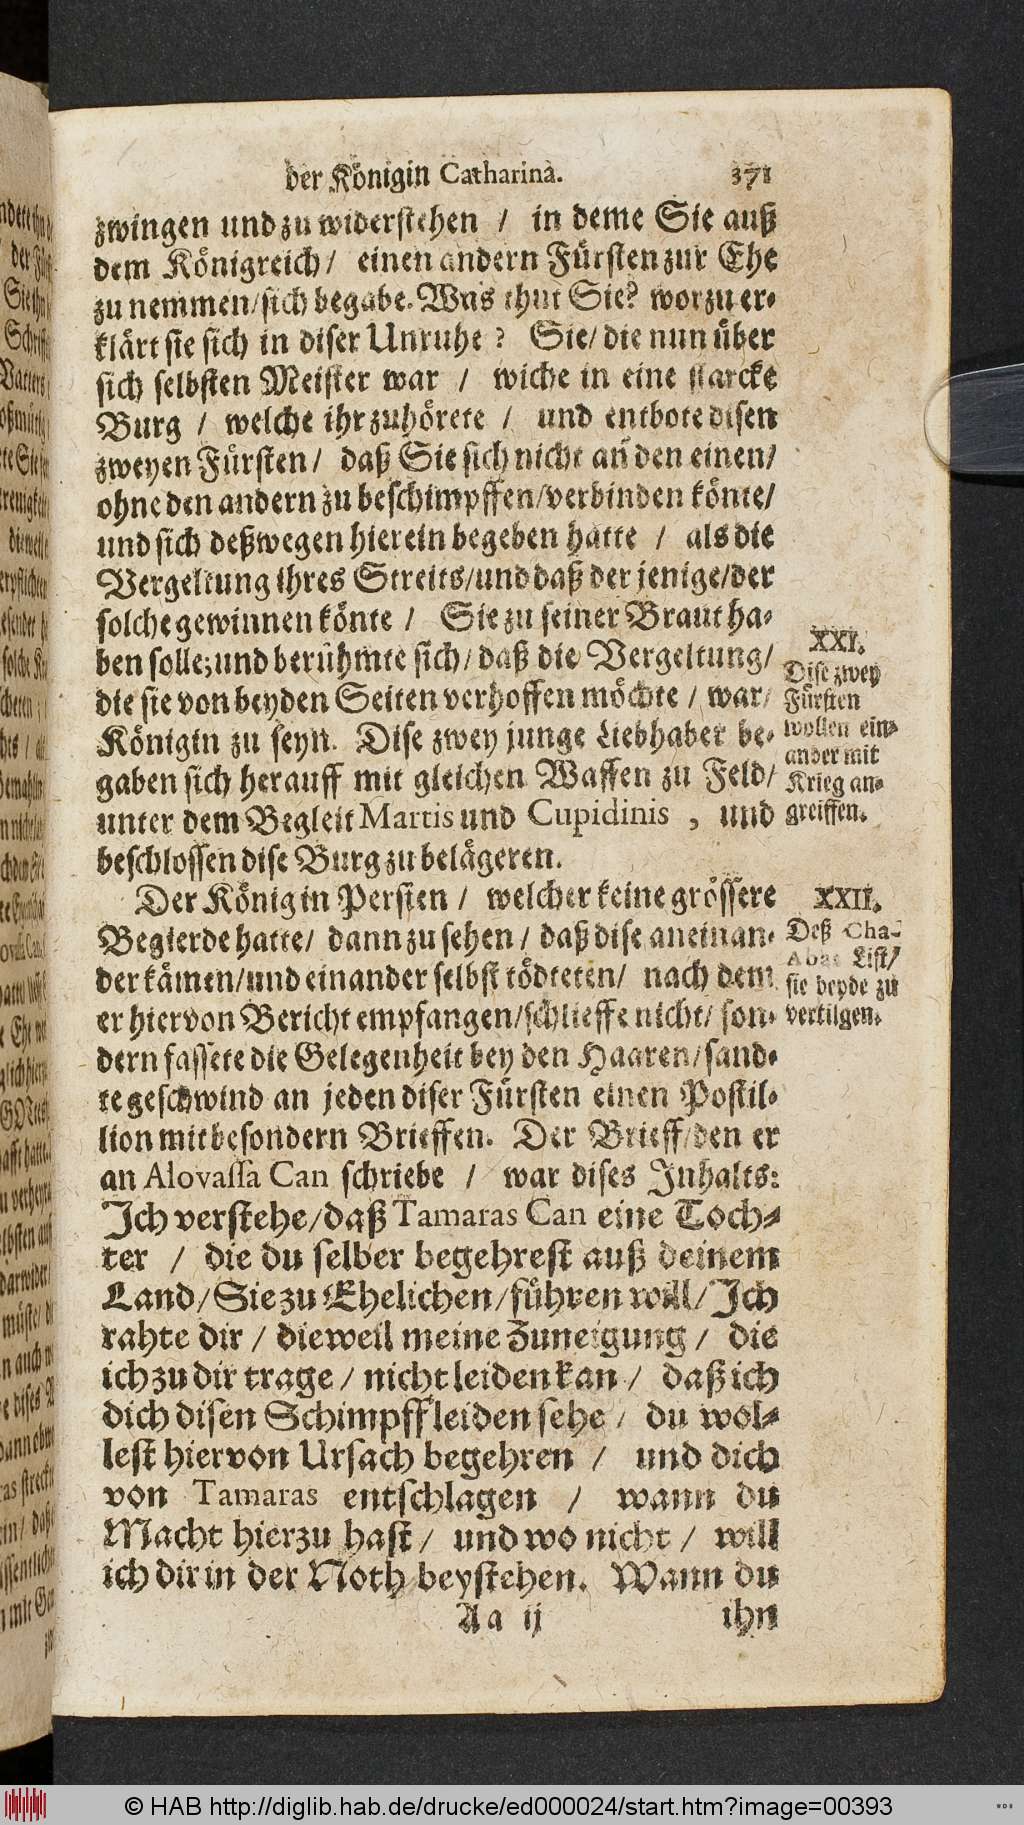 der Königin Catharina.
371
zwingen und zu widerstehen / in deme Sie auß
dem Königreich / einen andern Fürsten zur Ehe
zu nemmen / sich begabe. Was thut Sie? worzu er-
klärt sie sich in diser Unruhe? Sie / die nun über
sich selbsten Meister war / wiche in eine starcke
Burg / welche ihr zuhörete / und entbote disen
zweyen Fürsten / daß Sie sich nicht an den einen /
ohne den andern zu beschimpffen / verbinden könte /
und sich deßwegen hierein begeben hatte / als die
Vergeltung ihres Streits / und daß der jenige / der
solche gewinnen könte / Sie zu seiner Braut ha-
ben solle; und berühmte sich / daß die Vergeltung /
die sie von beyden Seiten verhoffen möchte / war /
Königin zu seyn. Dise zwey junge Liebhaber be-
gaben sich herauff mit gleichen Waffen zu Feld /
unter dem Begleit Martis und Cupidinis , und
beschlossen dise Burg zu belägeren.
XXI.
Dise zwey
Fürsten
wollen ein-
ander mit
Krieg an-
greiffen.
Der König in Persien / welcher keine grössere
Begierde hatte / dann zu sehen / daß dise aneinan-
der kämen / und einander selbst tödteten / nach dem
er hiervon Bericht empfangen / schlieffe nicht / son-
dern fassete die Gelegenheit bey den Haaren / sand-
te geschwind an jeden diser Fürsten einen Postil-
lion mit besondern Brieffen. Der Brieff / den er
an Alovassa Can schriebe / war dises Inhalts:
Ich verstehe / daß Tamaras Can eine Toch-
ter / die du selber begehrest auß deinem
Land / Sie zu Ehelichen / führen will / Ich
rahte dir / dieweil meine Zuneigung / die
ich zu dir trage / nicht leiden kan / daß ich
dich disen Schimpff leiden sehe / du wol-
lest hiervon Ursach begehren / und dich
von Tamaras entschlagen / wann du
Macht hierzu hast / und wo nicht / will
ich dir in der Noth beystehen. Wann du
XXII.
Deß Cha-
Abas List /
sie beyde zu
vertilgen.
Aa ij
ihn
© HAB http://diglib.hab.de/drucke/ed000024/start.htm?image=00393